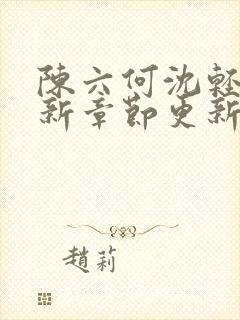 陳六何沈輕
新章節更新
趙莉